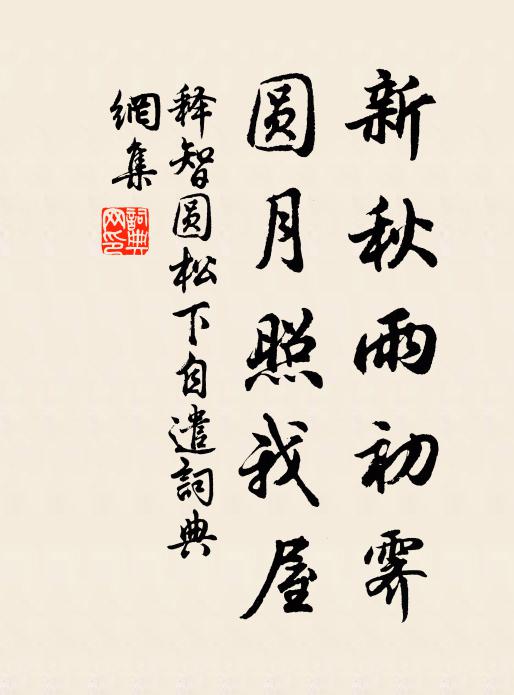 新秋雨初霁
圆月照我屋
释智圆松下自遣詞典
網集
詞典
网印